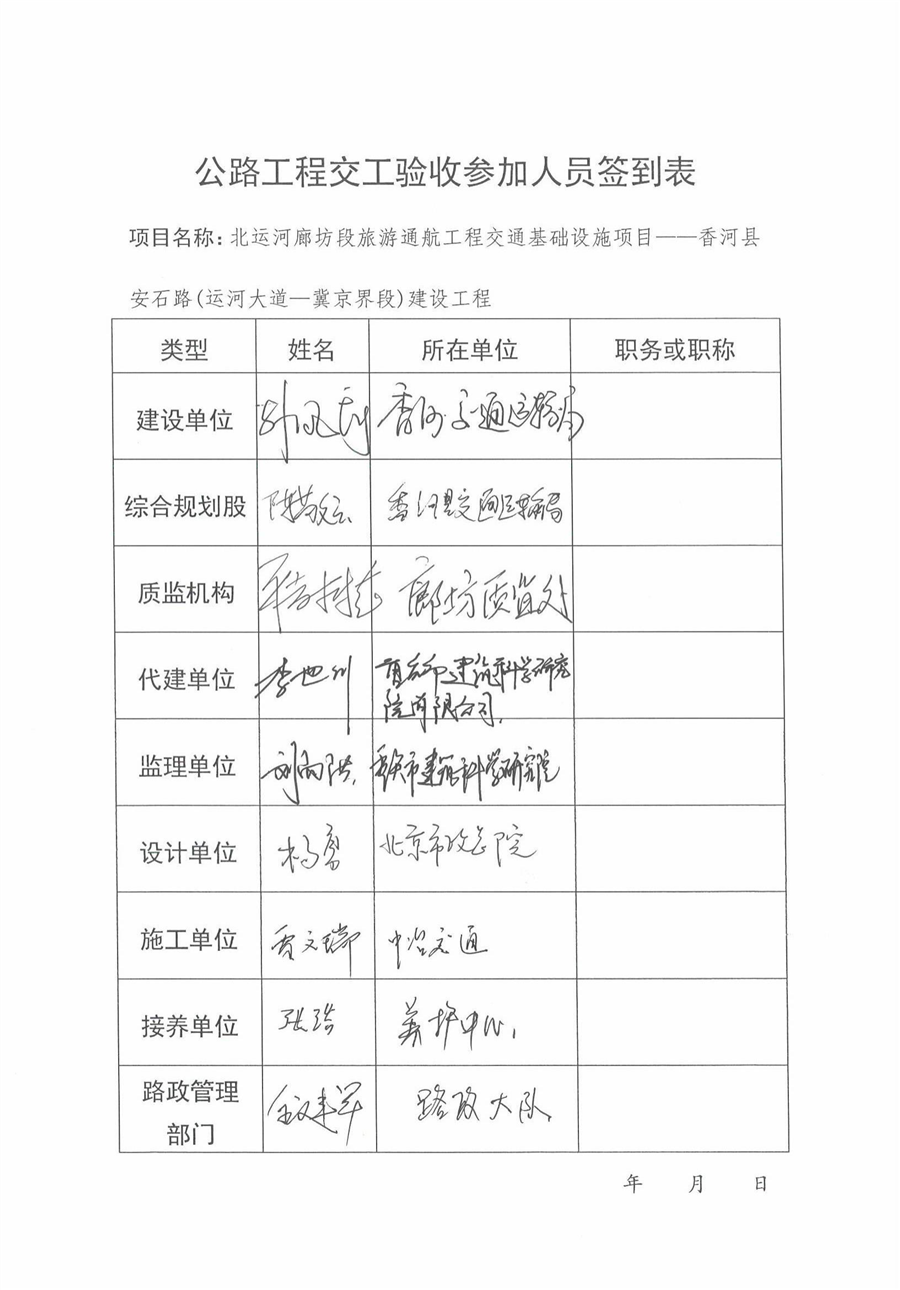 公路工程交工验收参加人员签到表
项目名称：北运河廊坊段旅游通航工程交通基础设施项目——香河县
安石路(运河大道—冀京界段)建设工程
类型 姓名 所在单位 职务或职称
建设单位 香河交通运输局
综合规划股 香河县交通运输局
质监机构 廊坊质监处
代建单位 李世川 建筑科学研究
院有限公司.
监理单位 市建筑科学研究院
设计单位 杨勇 北京市政总院
施工单位 贾文瑞 中冶交通
接养单位 张浩 养护中心.
路政管理
部门 路政大队.
年 月 日